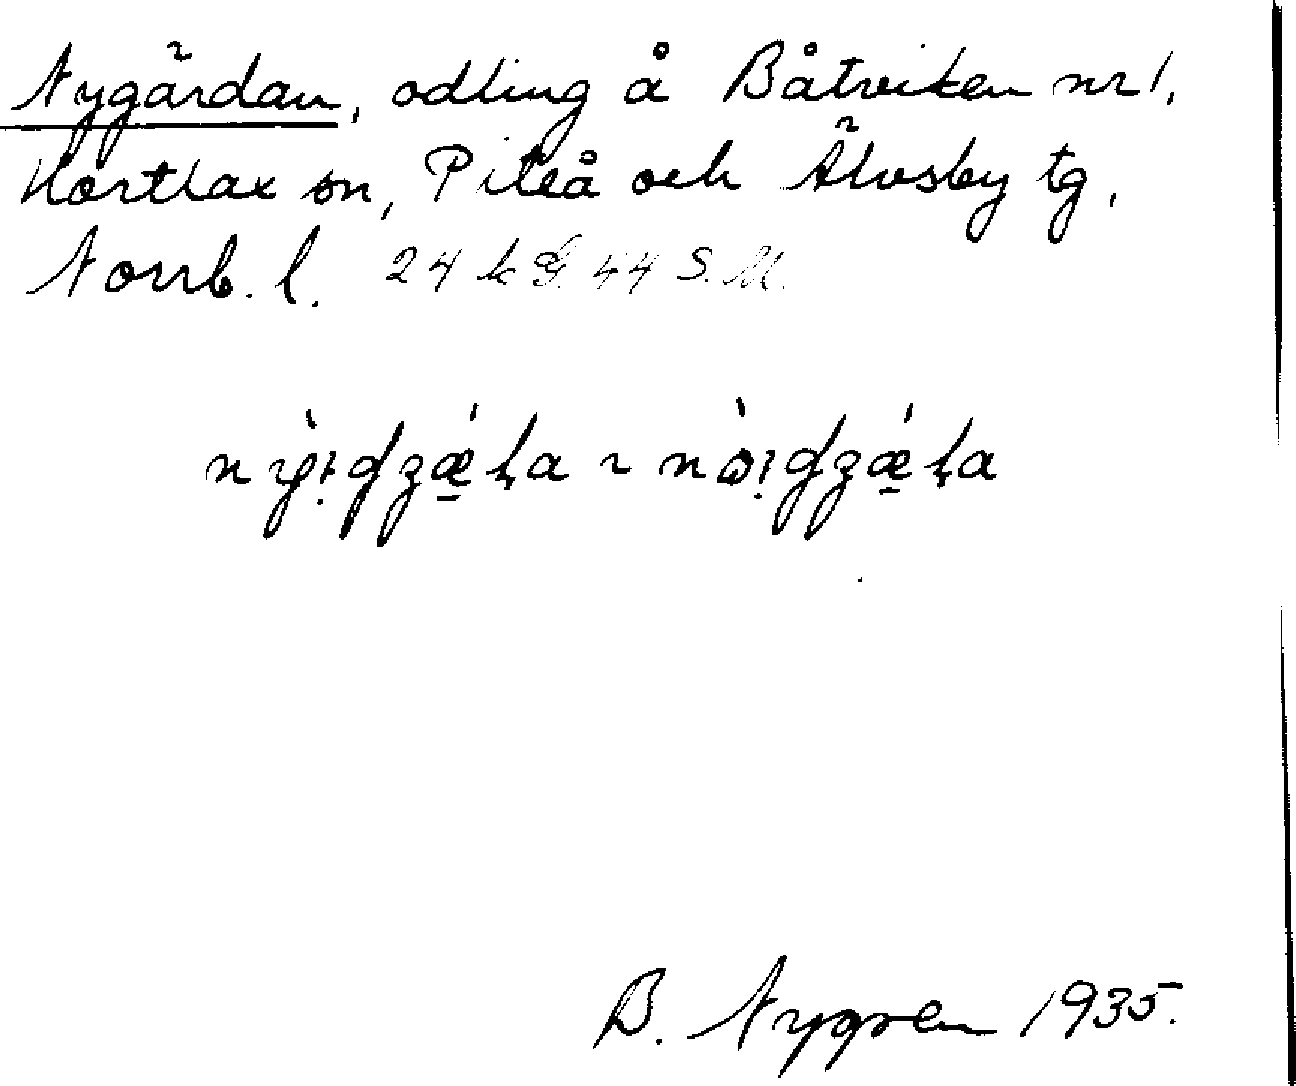 Nygärdan, odling å Båtviken nr 1,
Hortlax sn, Piteå och Älvsby tg,
Norrb. l. 24 k G. 44 S. M.
B. Nygren 1935.